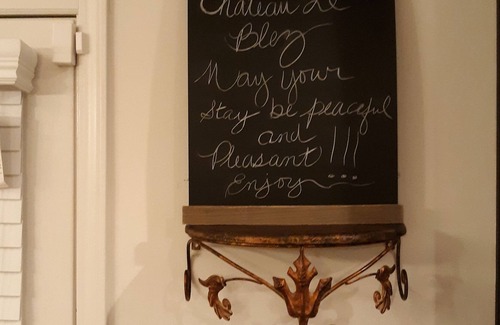 Chateau Le
Blez
May your
Stay be peaceful
and
Pleasant!!!
Enjoy...